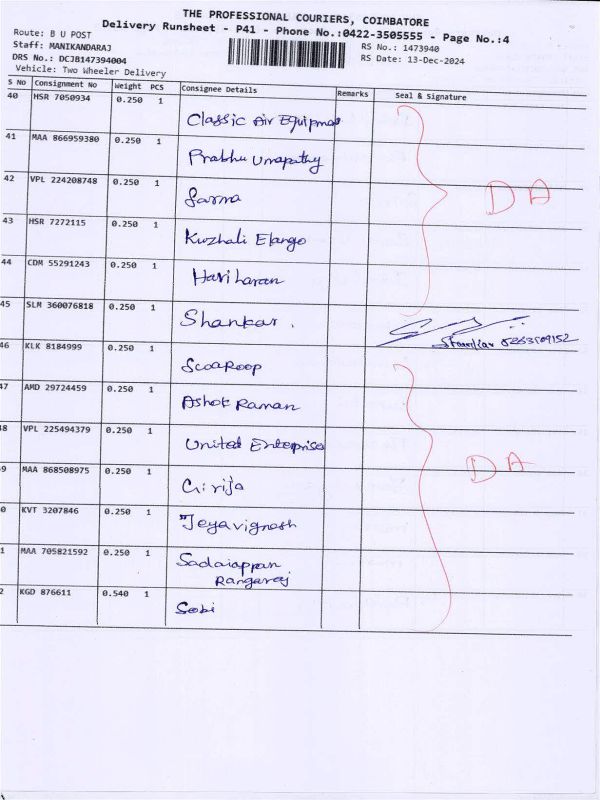 THE PROFESSIONAL COURIERS, COIMBATORE
Delivery Runsheet - P41 - Phone No.:0422-3505555 - Page No.:4
Route: B U POST
Staff: MANIKANDARAJ RS No.: 1473940
DRS No.: DCJB147394004 RS Date: 13-Dec-2024
Vehicle: Two Wheeler Delivery
S No Consignment No Weight PCS Consignee Details Remarks Seal & Signature
40 HSR 7050934 0.250 1 Classic Air Equipmet
41 MAA 866959380 0.250 1 Prabhu Umapathy
42 VPL 224208748 0.250 1 Sarma
DA
43 HSR 7272115 0.250 1 Kuzhali Elango
44 CDM 55291243 0.250 1 Hariharan
45 SLM 360076818 0.250 1 Shankar.
46 KLK 8184999 0.250 1 Scoaroop
47 AMD 29724459 0.250 1 Ashok Raman
48 VPL 225494379 0.250 1 United Enterprises
DA
9 MAA 868508975 0.250 1 Girija
0 KVT 3207846 0.250 1 Jeyavignesh
1 MAA 705821592 0.250 1 Sadaiappan
Rangaraj
2 KGD 876611 0.540 1 Sobi